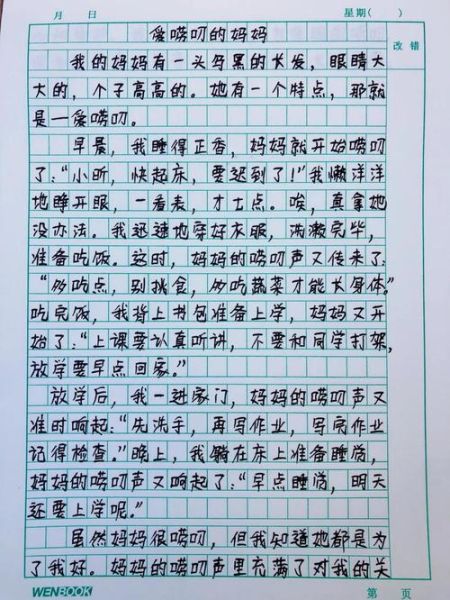 月 日 星期( )
改错
爱唠叨的妈妈
我的妈妈有一头乌黑的长发，眼睛大
大的，个子高高的。她有一个特点，那就
是一爱唠叨。
早晨，我睡得正香，妈妈就开始唠叨
了：“小昕，快起床，要迟到了！”我懒洋洋
地睁开眼，一看表，才七点。唉，真拿她
没办法。我迅速地穿好衣服，洗漱完毕，
准备吃饭。这时，妈妈的唠叨声又传来了：
“多吃点，别挑食，多吃蔬菜才能长身体。”
吃完饭，我背上书包准备上学，妈妈又开
始了：“上课要认真听讲，不要和同学打架，
放学要早点回家。”
放学后，我一进家门，妈妈的唠叨声又
准时响起：“先洗手，再写作业，写完作业
记得检查。”晚上，我躺在床上准备睡觉，
妈妈的唠叨声又响起了：“早点睡觉，明天
还要上学呢。”
虽然妈妈很唠叨，但我知道她都是为
了我好。妈妈的唠叨声里充满了对我的关
WENBOOK 第 页